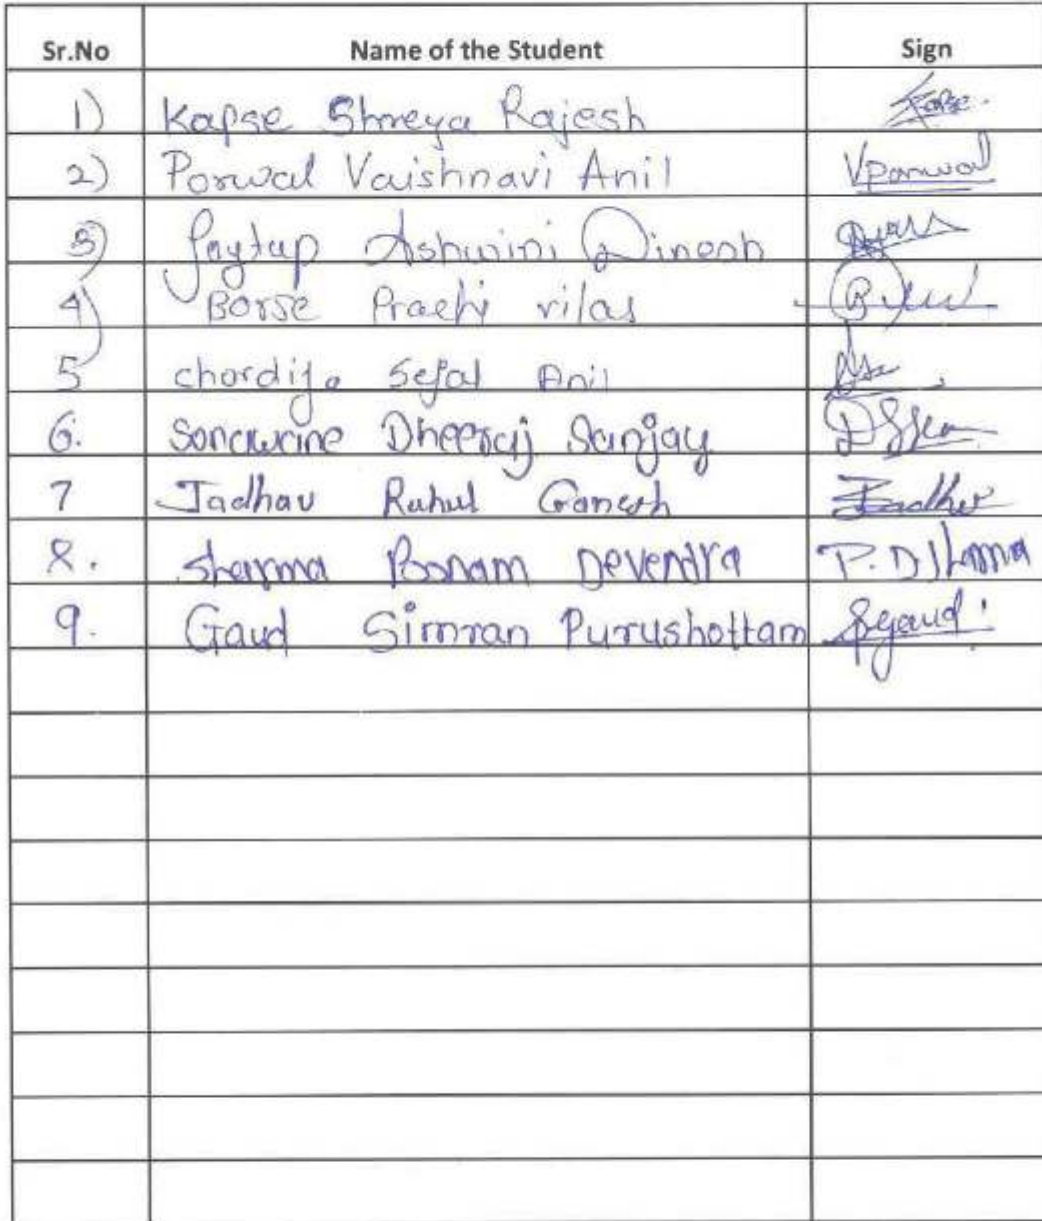 Sr.No Name of the Student Sign
1) Kapse Shreya Rajesh Kapse.
2) Porwal Vaishnavi Anil Vporwal
3) Jagtap Ashwini Dinesh
4) Borse Prachi vilas
5 chordiya Sejal Anil
6. sonawane Dheeraj Sanjay
7 Jadhav Rahul Ganesh Jadhav
8. sharma Poonam Devendra P.D Sharma
9. Gaud Simran Purushottam Sgaud